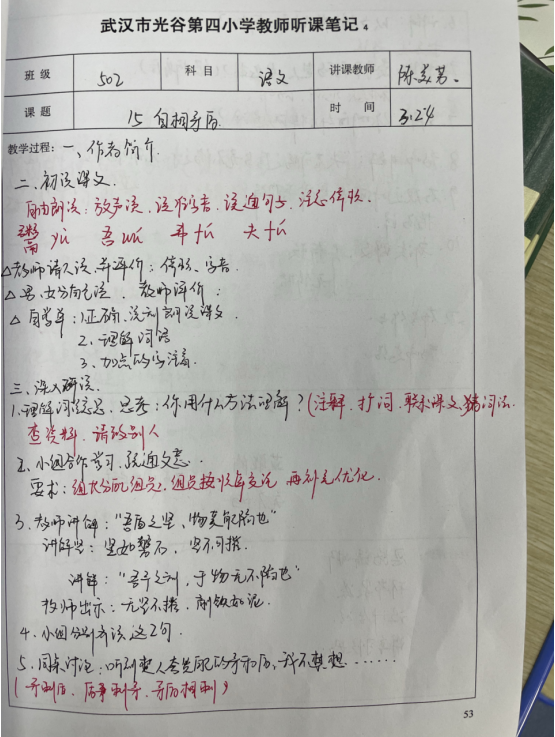 武汉市光谷第四小学教师听课笔记 4
班 级 502 科 目 语文 讲课教师 陈
课 题 15 自相矛盾 时 间 3.24
教学过程：一、作者简介
二、初读课文.
自由朗读：放声读，读准字音，读通句子，注意停顿.
鬻 yù 吾 wú 弗 fú 夫 fú
△教师请人读，并评价：停顿、字音.
△男、女分角色读. 教师评价.
△自学单：1.正确、流利朗读课文.
2、理解词语
3、加点的字注音.
三、深入研读.
1.理解词语意思. 思考：你用什么方法理解？(注释、扩词、联系课文、猜词法、
查资料、请教别人
2、小组合作学习，疏通文意.
要求：组长分配组员，组员按顺序交流，再补充优化.
3、教师讲解："吾盾之坚，物莫能陷也"
讲解坚：坚如磐石，坚不可摧.
讲解："吾矛之利，于物无不陷也"
教师出示：无坚不摧，削铁如泥.
4、小组分别齐读这2句.
5、同桌讨论：听到楚人夸赞他的矛和盾，我不禁想.......
(矛利盾、盾 矛、矛盾相 )
53